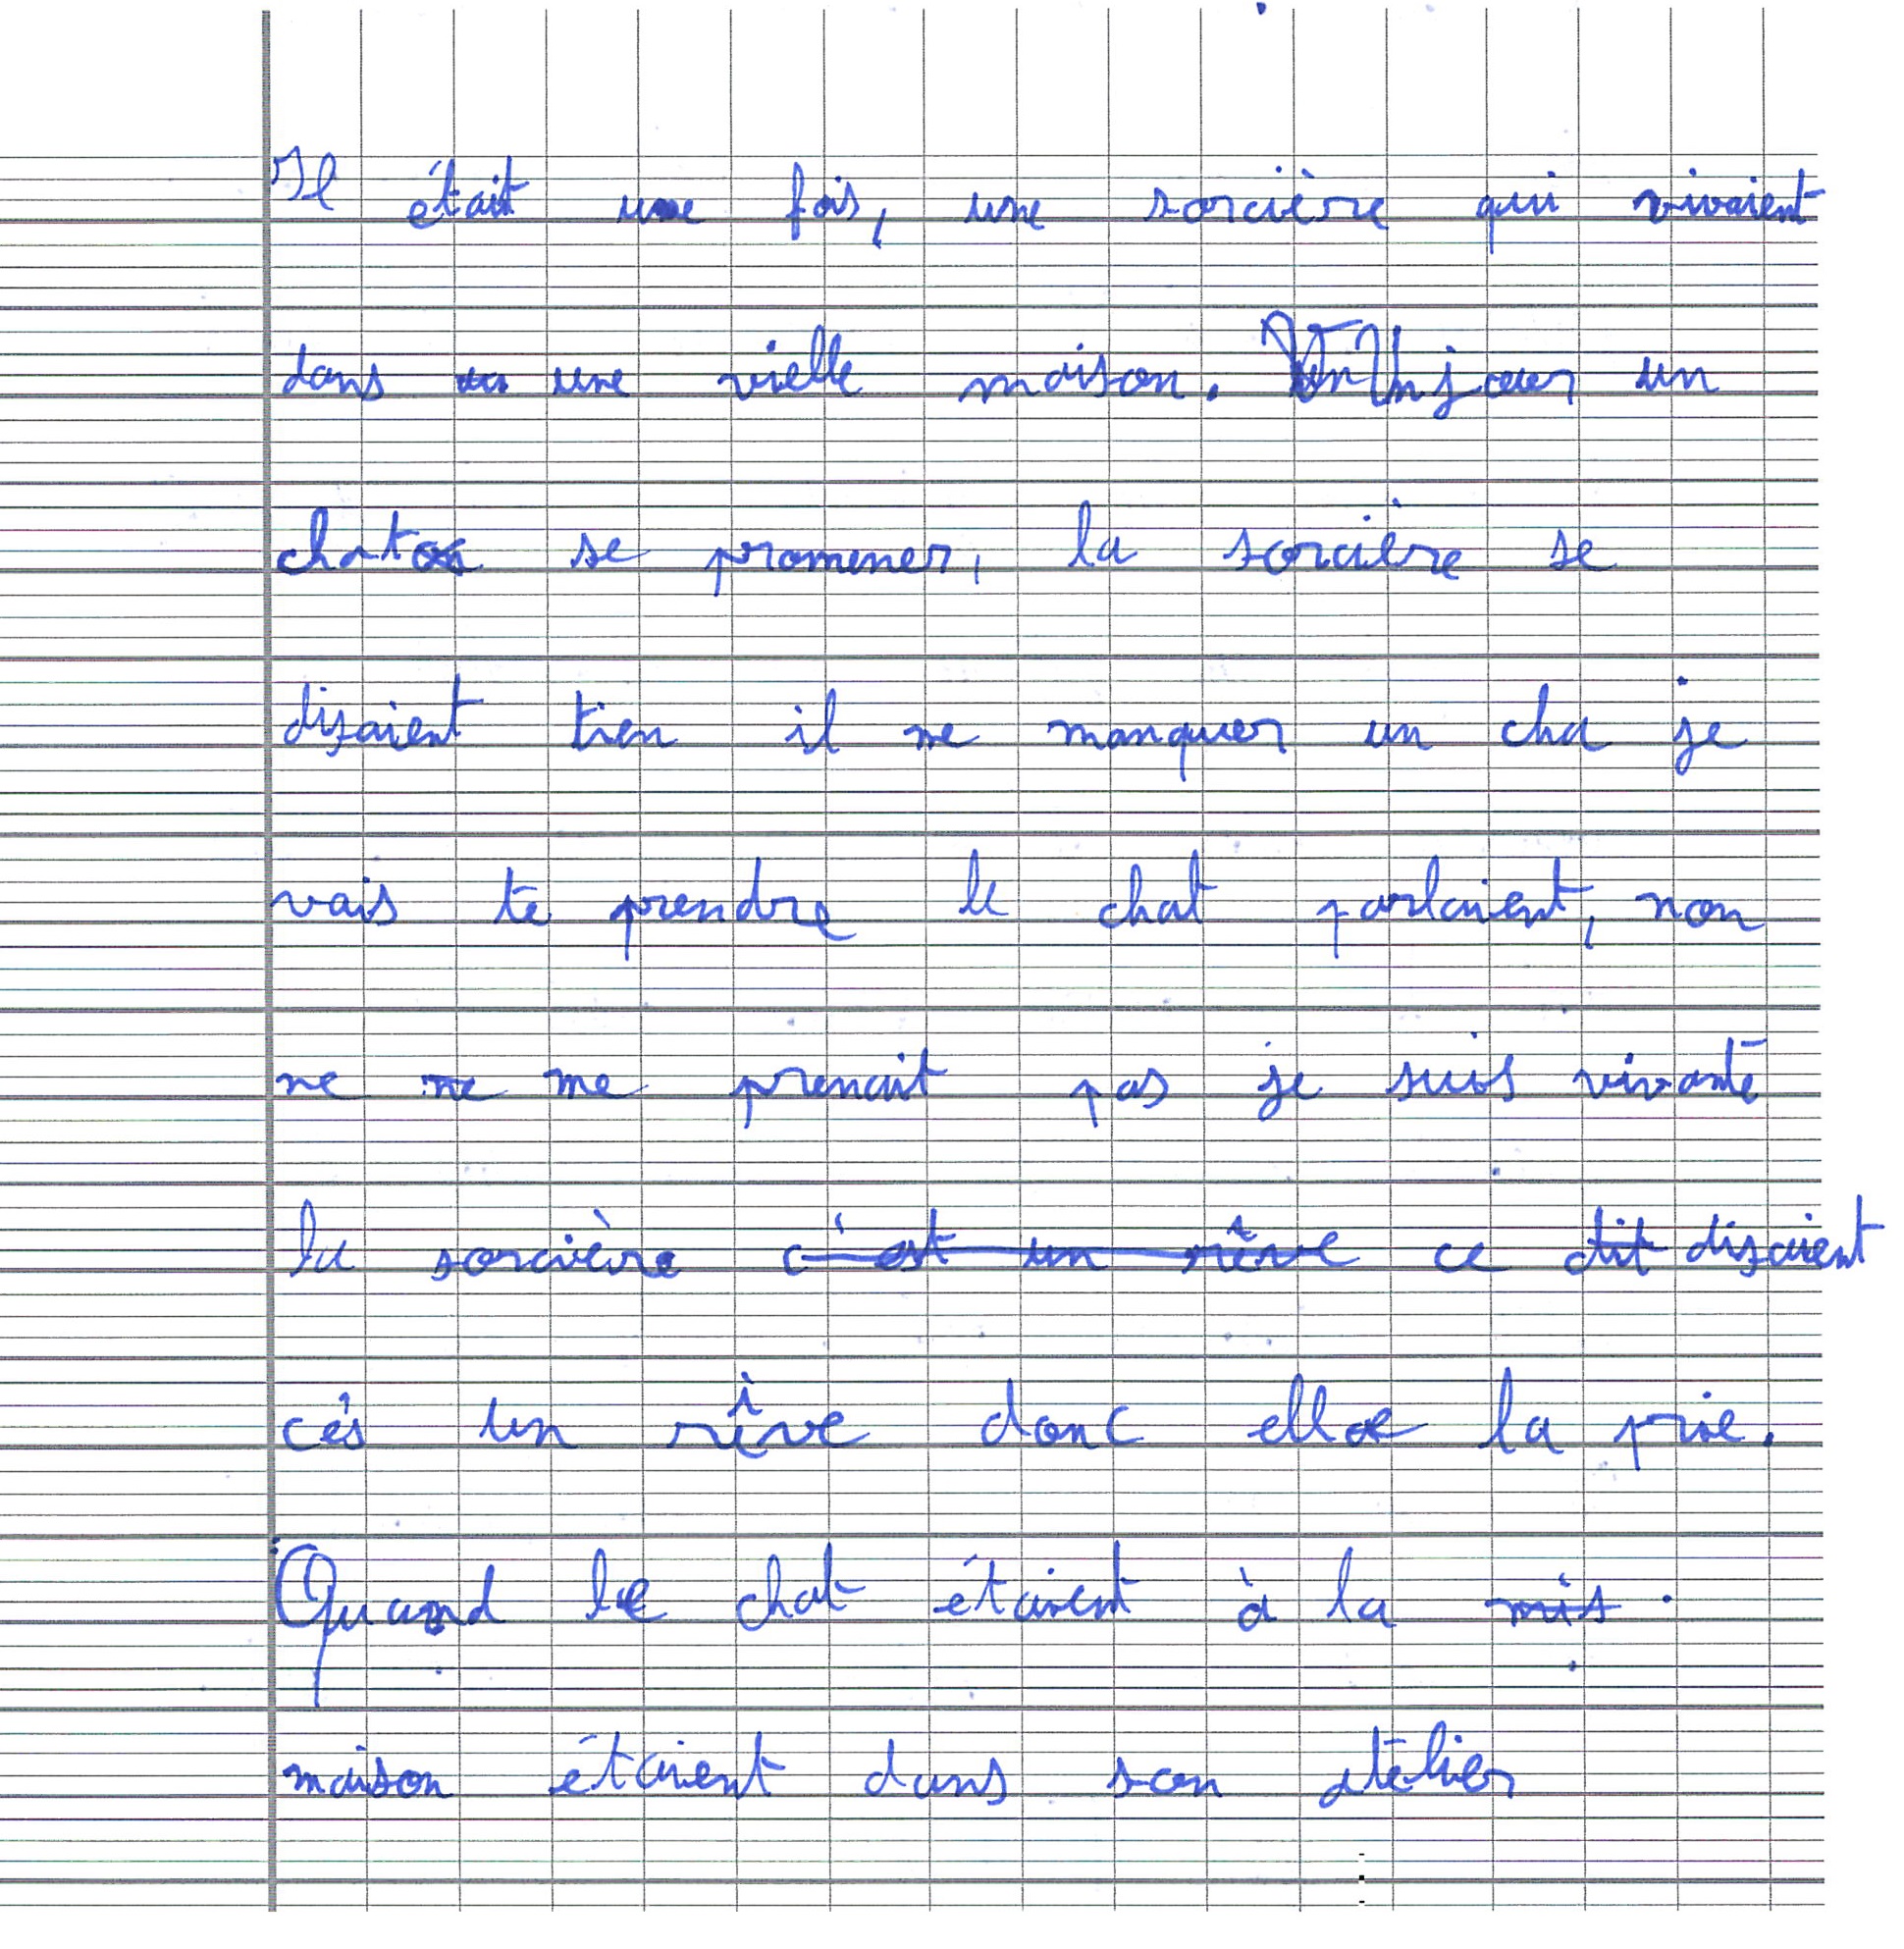 Il était une fois, une sorcière qui vivaient
dans une vielle maison. Un jour un
chat se promener, la sorcière se
disaient tien il me manquer un cha je
vais te prendre le chat parlaient, non
ne me prenait pas je suis vivante
la sorcière c'est un rêve ce dit disaient
cés un rêve donc elle la prie.
Quand le chat étaient à la mis
maison étaient dans son atélier